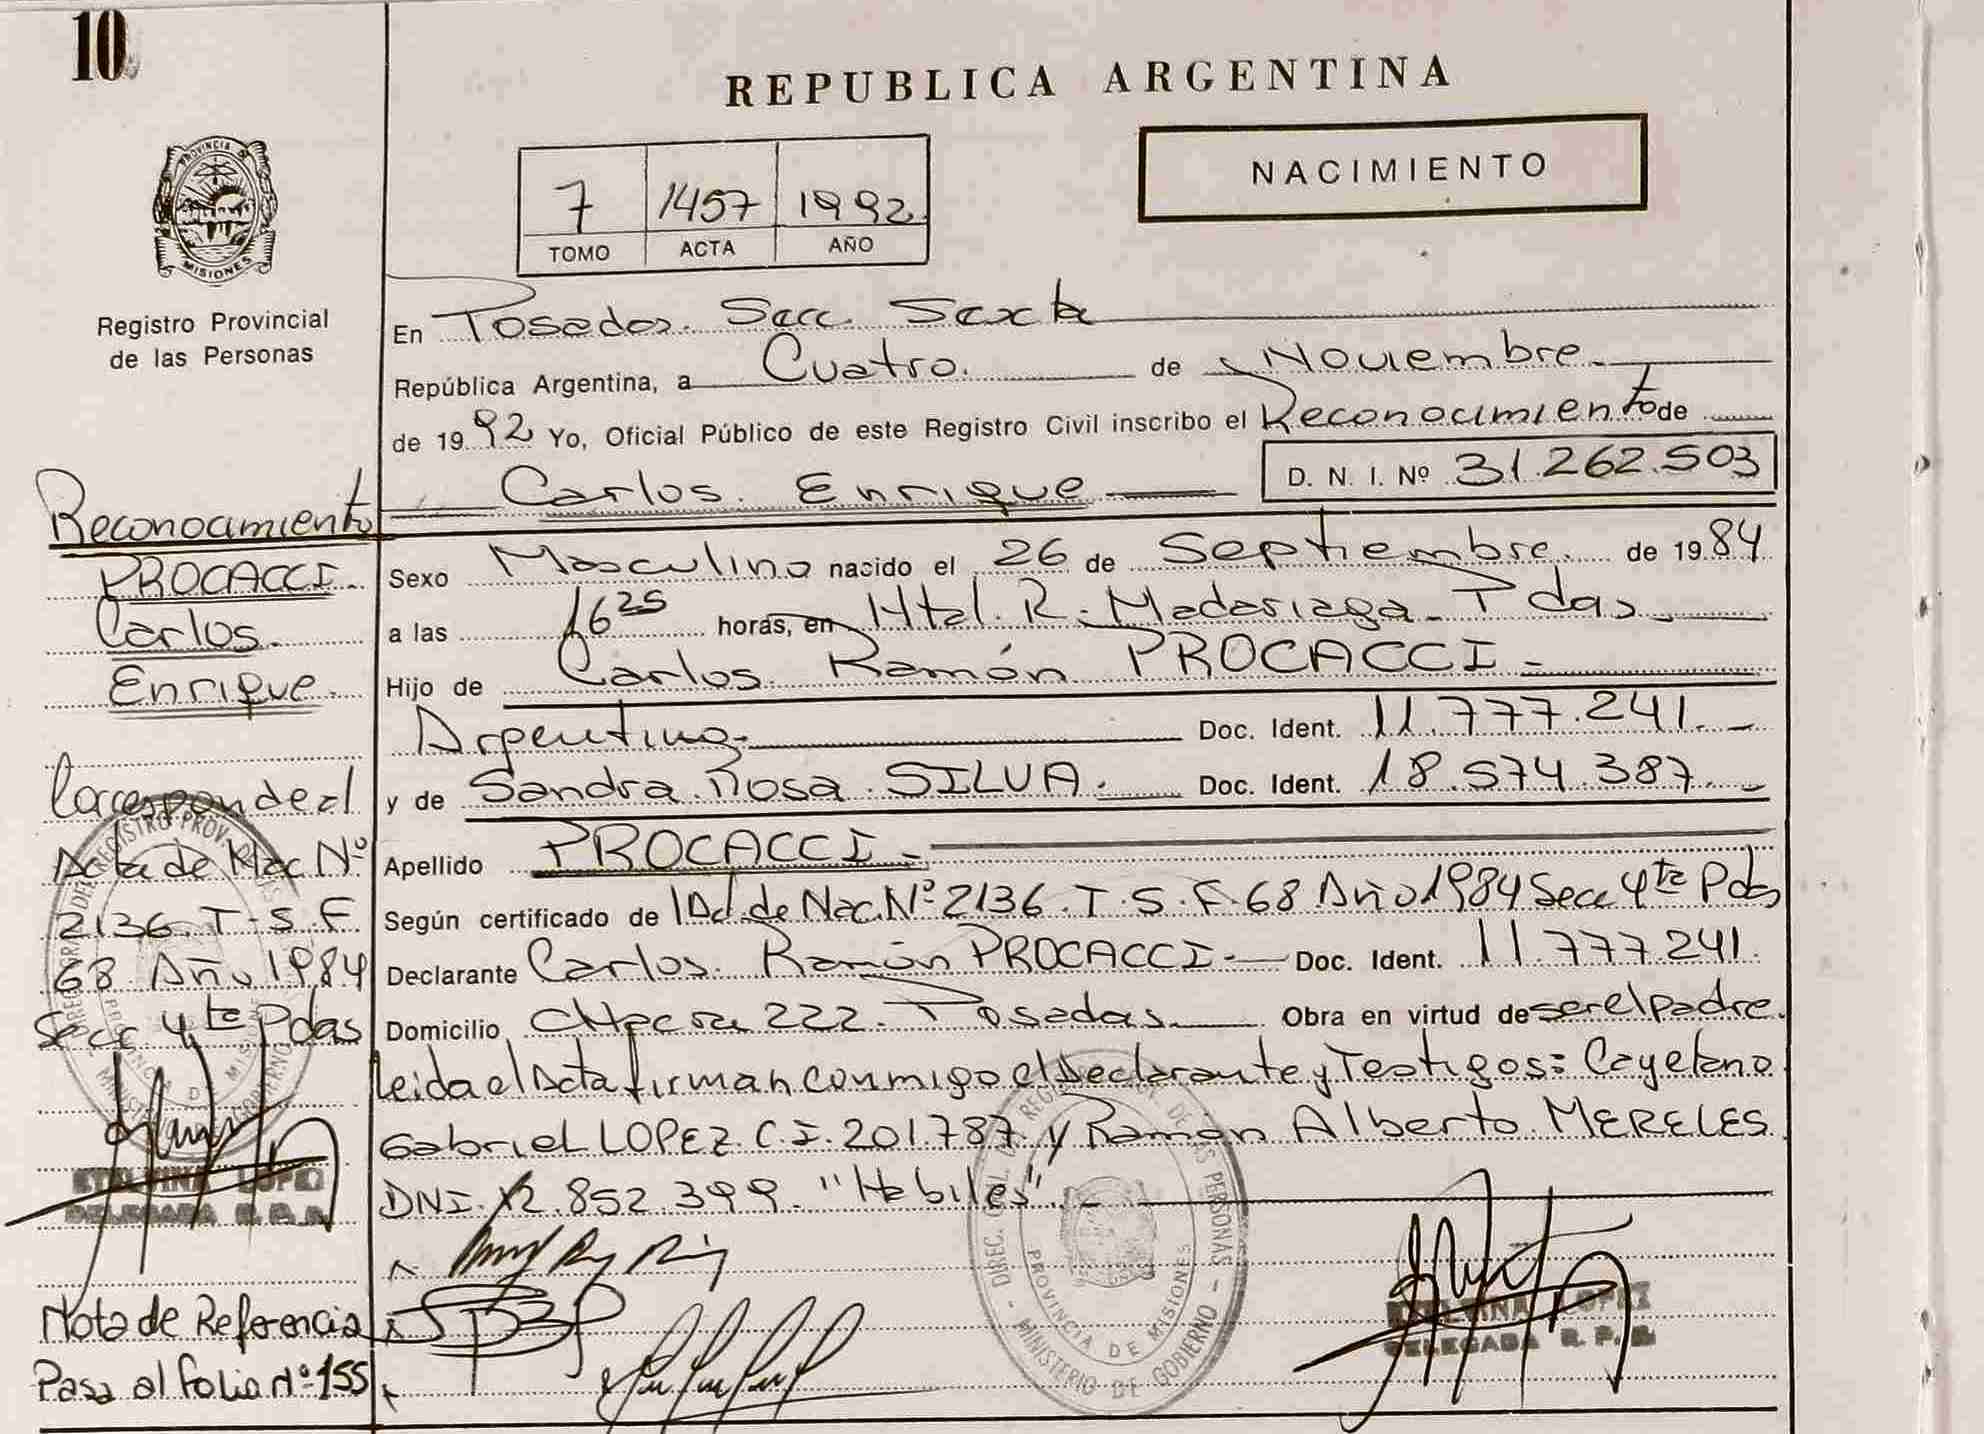 10
REPUBLICA ARGENTINA
NACIMIENTO
7 1457 1992
TOMO ACTA AÑO
PROVINCIA DE
MISIONES
Registro Provincial
de las Personas
En Posadas. Secc. Sexta
República Argentina, a Cuatro. de Noviembre
de 1992 Yo, Oficial Público de este Registro Civil inscribo el Reconocimiento de
Carlos. Enrique D. N. I. Nº 31.262.503
Sexo Masculino nacido el 26 de Septiembre. de 1984
a las 16 25 horas, en Htal. R. Madariaga. Pdas.
Hijo de Carlos. Ramón PROCACCI.-
Argentino.- Doc. Ident. 11.777.241.-
y de Sandra. Rosa. SILVA. Doc. Ident. 18.574.387.-
Apellido PROCACCI.-
Según certificado de Ac. de Nac. Nº 2136. T. S. F. 68 Año 1984 Secc 4ta Pdas
Declarante Carlos. Ramón PROCACCI.- Doc. Ident. 11.777.241.
Domicilio 222. Posadas. Obra en virtud de ser el padre.
Leida el Acta firman conmigo el Declarante y Testigos: Cayetano
Gabriel LOPEZ C.I. 201.787 y Ramón Alberto MERELES
DNI. 12.852.399. "Habiles".
Reconocimiento
PROCACCI.
Carlos.
Enrique.
Corresponde al
Acta de Nac Nº
2136. T. S. F.
68 Año 1984
Secc 4ta Pdas
ETELVINA LOPEZ
DELEGADA R. P. P.
Nota de Referencia
Pasa al folio Nº 155
DIREC. GRAL. DEL REGISTRO PROV. DE LAS PERSONAS
PROVINCIA DE MISIONES
MINISTERIO DE GOBIERNO
ETELVINA LOPEZ
DELEGADA R. P. P.